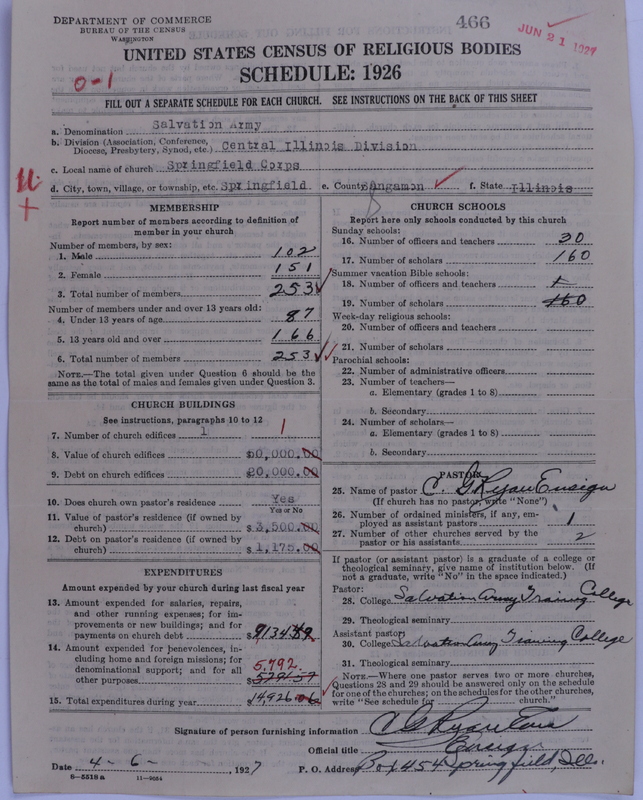 DEPARTMENT OF COMMERCE
BUREAU OF THE CENSUS
WASHINGTON
466
JUN 21 1927
UNITED STATES CENSUS OF RELIGIOUS BODIES
SCHEDULE: 1926
0-1
FILL OUT A SEPARATE SCHEDULE FOR EACH CHURCH. SEE INSTRUCTIONS ON THE BACK OF THIS SHEET
a. Denomination Salvation Army
b. Division (Association, Conference, Diocese, Presbytery, Synod, etc.) Central Illinois Division
c. Local name of church Springfield Corps
d. City, town, village, or township, etc. Springfield e. County Sangamon f. State Illinois
MEMBERSHIP
Report number of members according to definition of
member in your church
Number of members, by sex:
1. Male 102
2. Female 151
3. Total number of members 253
Number of members under and over 13 years old:
4. Under 13 years of age 87
5. 13 years old and over 166
6. Total number of members 253
NOTE.—The total given under Question 6 should be the
same as the total of males and females given under Question 3.
CHURCH BUILDINGS
See instructions, paragraphs 10 to 12
7. Number of church edifices 1 1
8. Value of church edifices $60,000.00
9. Debt on church edifices $20,000.00
10. Does church own pastor's residence Yes
Yes or No
11. Value of pastor's residence (if owned by
church) $3,500.00
12. Debt on pastor's residence (if owned by
church) $1,175.00
EXPENDITURES
Amount expended by your church during last fiscal year
13. Amount expended for salaries, repairs,
and other running expenses; for im-
provements or new buildings; and for
payments on church debt $9134
14. Amount expended for benevolences, in-
cluding home and foreign missions; for
denominational support; and for all
other purposes 5,792. $5791 57
15. Total expenditures during year $14,926
CHURCH SCHOOLS
Report here only schools conducted by this church
Sunday schools:
16. Number of officers and teachers 30
17. Number of scholars 160
Summer vacation Bible schools:
18. Number of officers and teachers
19. Number of scholars 160
Week-day religious schools:
20. Number of officers and teachers
21. Number of scholars
Parochial schools:
22. Number of administrative officers
23. Number of teachers—
a. Elementary (grades 1 to 8)
b. Secondary
24. Number of scholars—
a. Elementary (grades 1 to 8)
b. Secondary
PASTORS
25. Name of pastor C. G. Ryan Ensign
(If church has no pastor, write "None")
26. Number of ordained ministers, if any, em-
ployed as assistant pastors 1
27. Number of other churches served by the
pastor or his assistants 2
If pastor (or assistant pastor) is a graduate of a college or
theological seminary, give name of institution below. (If
not a graduate, write "No" in the space indicated.)
Pastor:
28. College Salvation Army Training College
29. Theological seminary
Assistant pastor:
30. College Salvation Army Training College
31. Theological seminary
NOTE.—Where one pastor serves two or more churches,
Questions 28 and 29 should be answered only on the schedule
for one of the churches; on the schedules for the other churches,
write "See schedule for church."
Signature of person furnishing information C G Ryan Ens
Official title Ensign
Date 4-6-, 1927 P. O. Address Box 454 Springfield, Ills.
8-5518 a 11-9554